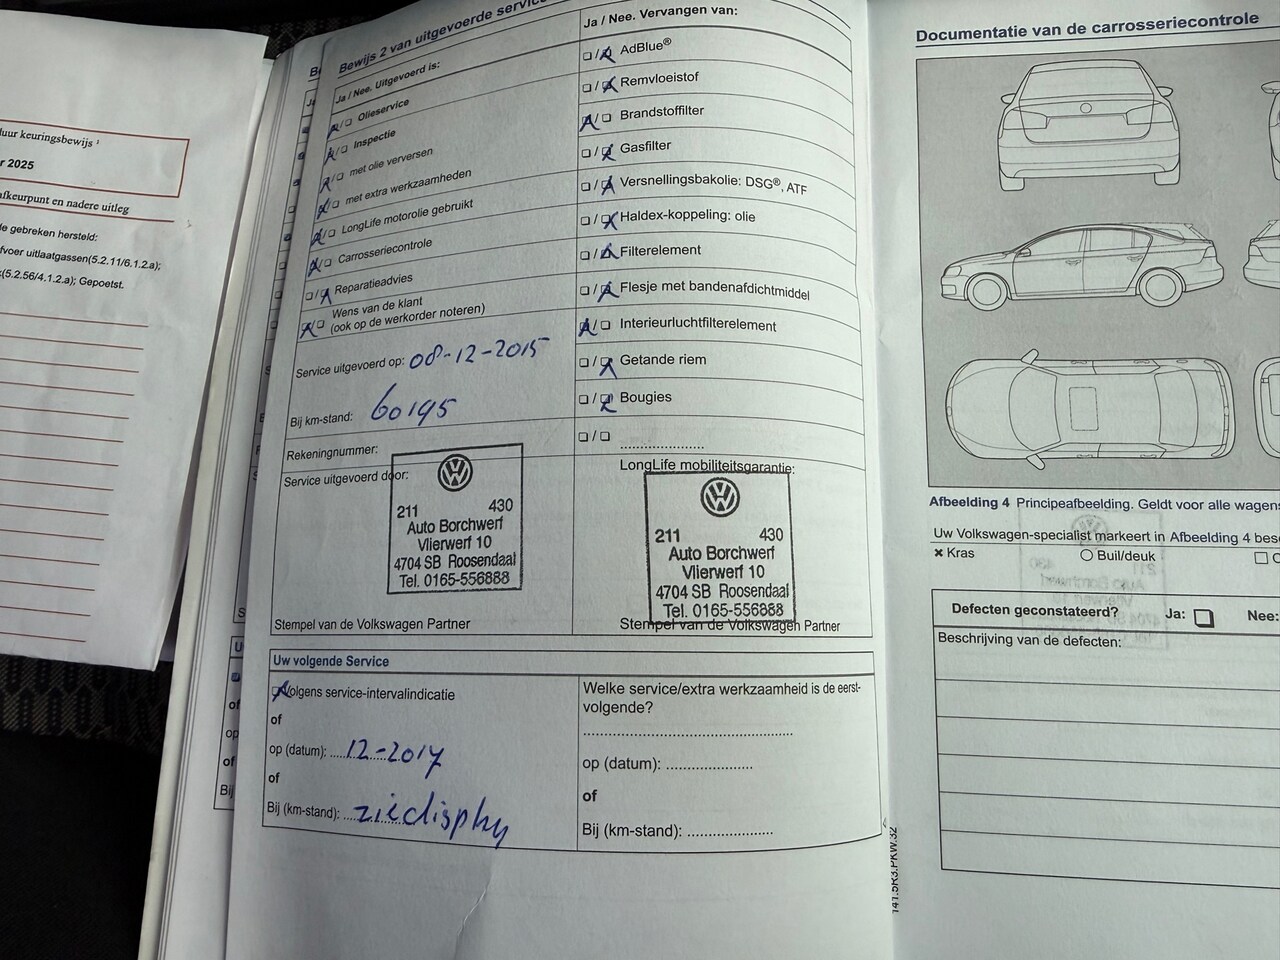 duur keuringsbewijs ¹
r 2025
afkeurpunt en nadere uitleg
de gebreken hersteld:
fvoer uitlaatgassen(5.2.11/6.1.2.a);
(5.2.56/4.1.2.a); Gepoetst.
Bewijs 2 van uitgevoerde service
Ja / Nee. Uitgevoerd is:
Olieservice
Inspectie
met olie verversen
met extra werkzaamheden
LongLife motorolie gebruikt
Carrosseriecontrole
Reparatieadvies
Wens van de klant
(ook op de werkorder noteren)
Service uitgevoerd op: 08-12-2015
Bij km-stand: 60195
Rekeningnummer:
Service uitgevoerd door:
211 430
Auto Borchwerf
Vlierwerf 10
4704 SB Roosendaal
Tel. 0165-556888
Stempel van de Volkswagen Partner
Ja / Nee. Vervangen van:
AdBlue®
Remvloeistof
Brandstoffilter
Gasfilter
Versnellingsbakolie: DSG®, ATF
Haldex-koppeling: olie
Filterelement
Flesje met bandenafdichtmiddel
Interieurluchtfilterelement
Getande riem
Bougies
LongLife mobiliteitsgarantie:
211 430
Auto Borchwerf
Vlierwerf 10
4704 SB Roosendaal
Tel. 0165-556888
Stempel van de Volkswagen Partner
Uw volgende Service
Volgens service-intervalindicatie
of
op (datum): 12-2017
of
Bij (km-stand): zie display
Welke service/extra werkzaamheid is de eerst-
volgende?
op (datum):
of
Bij (km-stand):
141.5R3.PKW.32
Documentatie van de carrosseriecontrole
Afbeelding 4 Principeafbeelding. Geldt voor alle wagens
Uw Volkswagen-specialist markeert in Afbeelding 4 bes
× Kras
Buil/deuk
Defecten geconstateerd? Ja: Nee:
Beschrijving van de defecten: